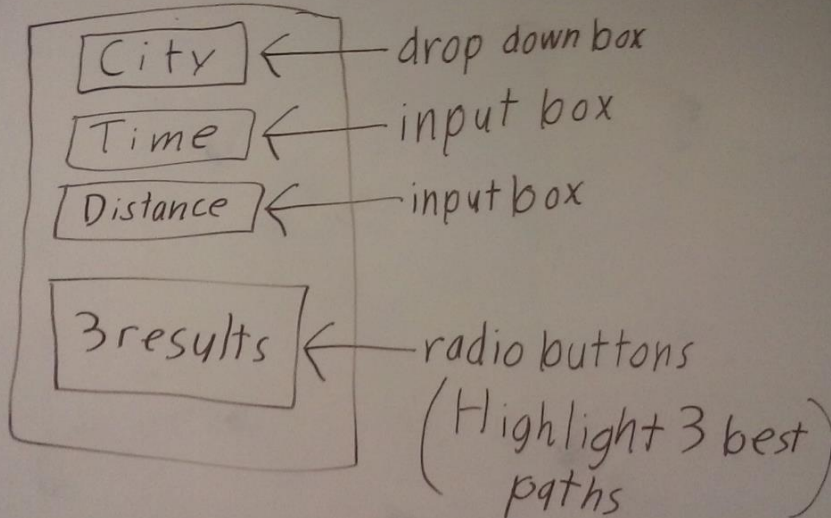 City
drop down box
Time
input box
Distance
input box
3 results
radio buttons
(Highlight 3 best
paths)